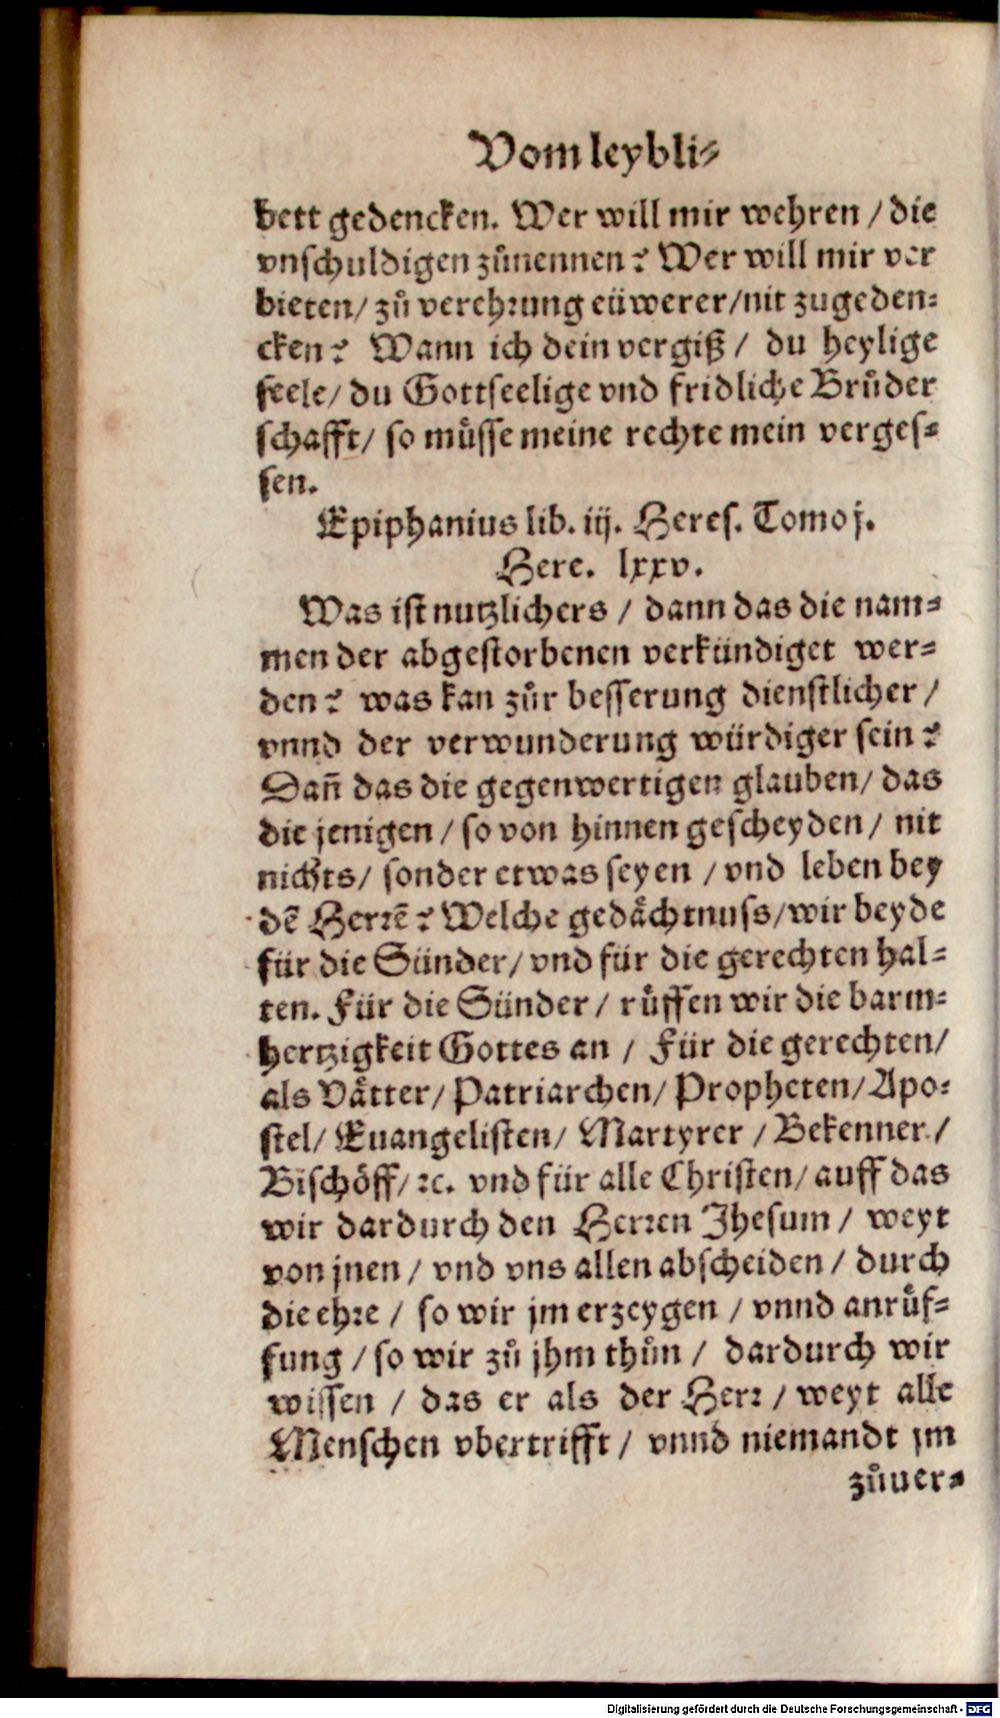 Vom leybli⸗
bett gedencken. Wer will mir wehren / die
vnschuldigen zůnennen? Wer will mir ver
bieten / zů verehrung eüwerer / nit zugeden⸗
cken? Wann ich dein vergiß / du heylige
seele / du Gottseelige vnd fridliche Brůder
schafft / so můsse meine rechte mein verges⸗
sen.
Epiphanius lib. iij. Heres. Tomo j.
Here. lxxv.
Was ist nutzlichers / dann das die nam⸗
men der abgestorbenen verkündiget wer⸗
den? was kan zůr besserung dienstlicher /
vnnd der verwunderung würdiger sein?
Dañ das die gegenwertigen glauben / das
die jenigen / so von hinnen gescheyden / nit
nichts / sonder etwas seyen / vnd leben bey
dē Herrē? Welche gedåchtnuss / wir beyde
für die Sünder / vnd für die gerechten hal⸗
ten. Für die Sünder / růffen wir die barm⸗
hertzigkeit Gottes an / Für die gerechten /
als Våtter / Patriarchen / Propheten / Apo⸗
stel / Euangelisten / Martyrer / Bekenner /
Bischöff / ꝛc. vnd für alle Christen / auff das
wir dardurch den Herren Jhesum / weyt
von jnen / vnd vns allen abscheiden / durch
die ehre / so wir jm erzeygen / vnnd anrůf⸗
fung / so wir zů jhm thůn / dardurch wir
wissen / das er als der Herr / weyt alle
Menschen vbertrifft / vnnd niemandt jm
zůuer⸗
Digitalisierung gefördert durch die Deutsche Forschungsgemeinschaft - DFG